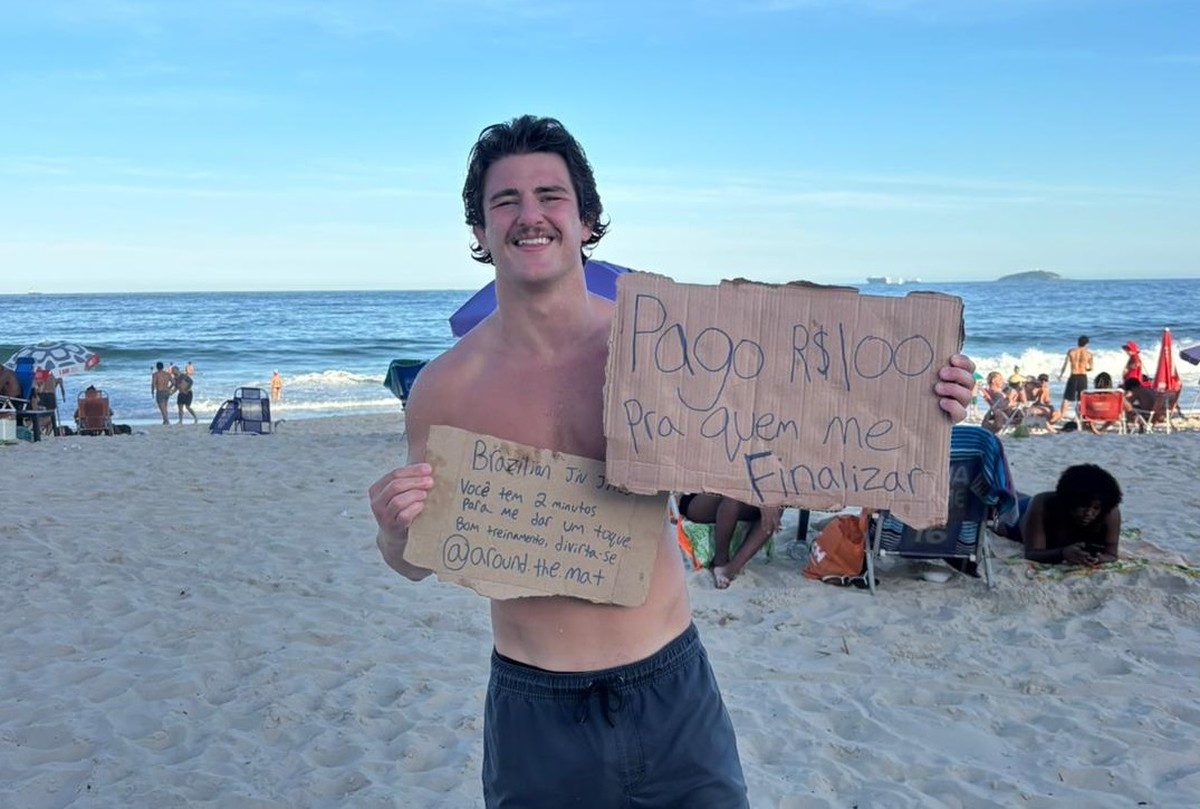 Pago R$100
pra quem me
Finalizar
Brazilian JIU
Você tem 2 minutos
para me dar um toque.
Bom treinamento, divirta-se
@around.the.mat
16